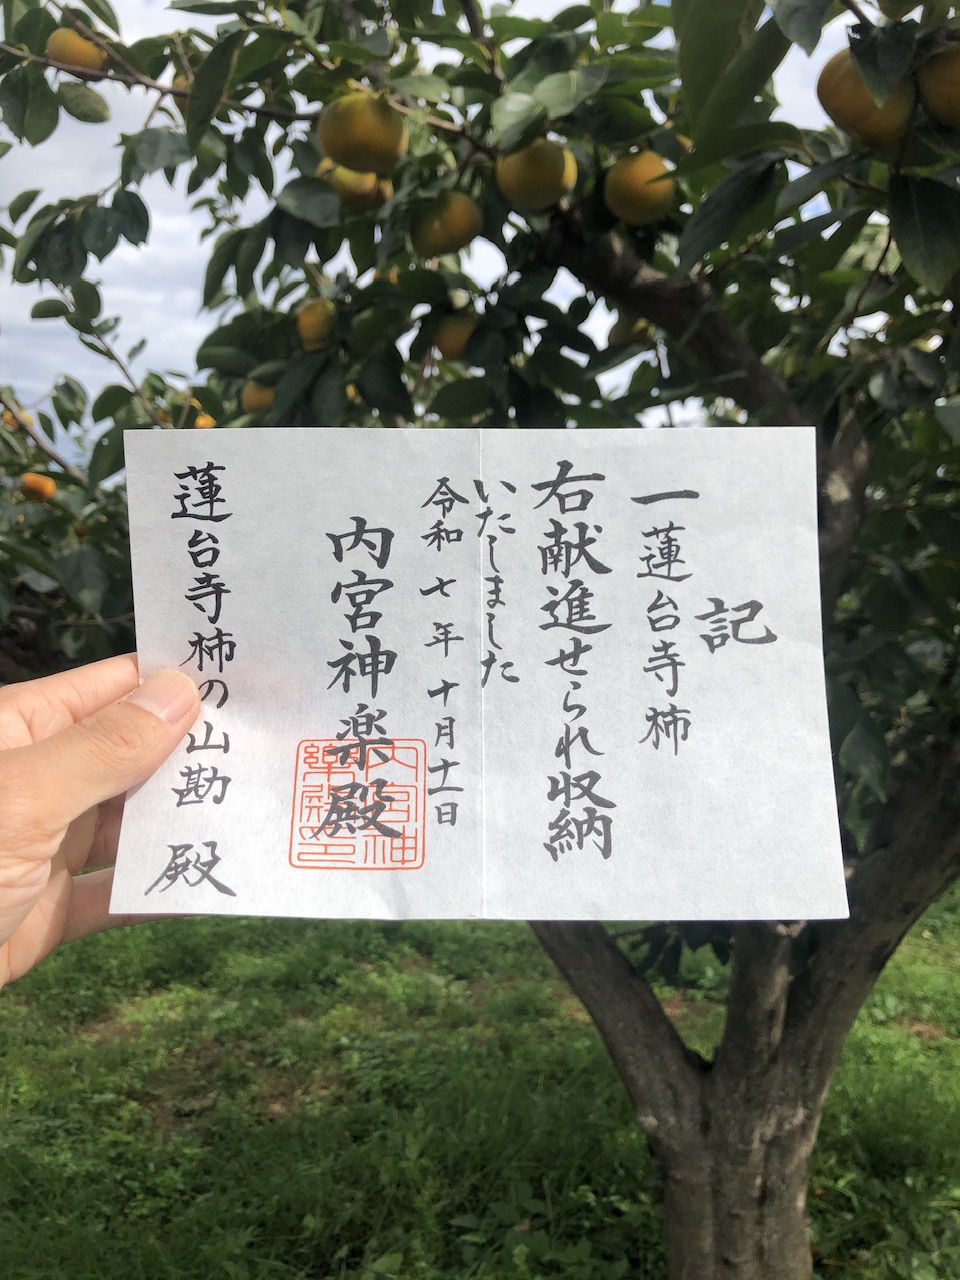 記
一 蓮台寺柿
右献進せられ収納
いたしました
令和 七年 十月十一日
内宮神楽殿
内宮神
楽殿印
蓮台寺柿の山勘 殿